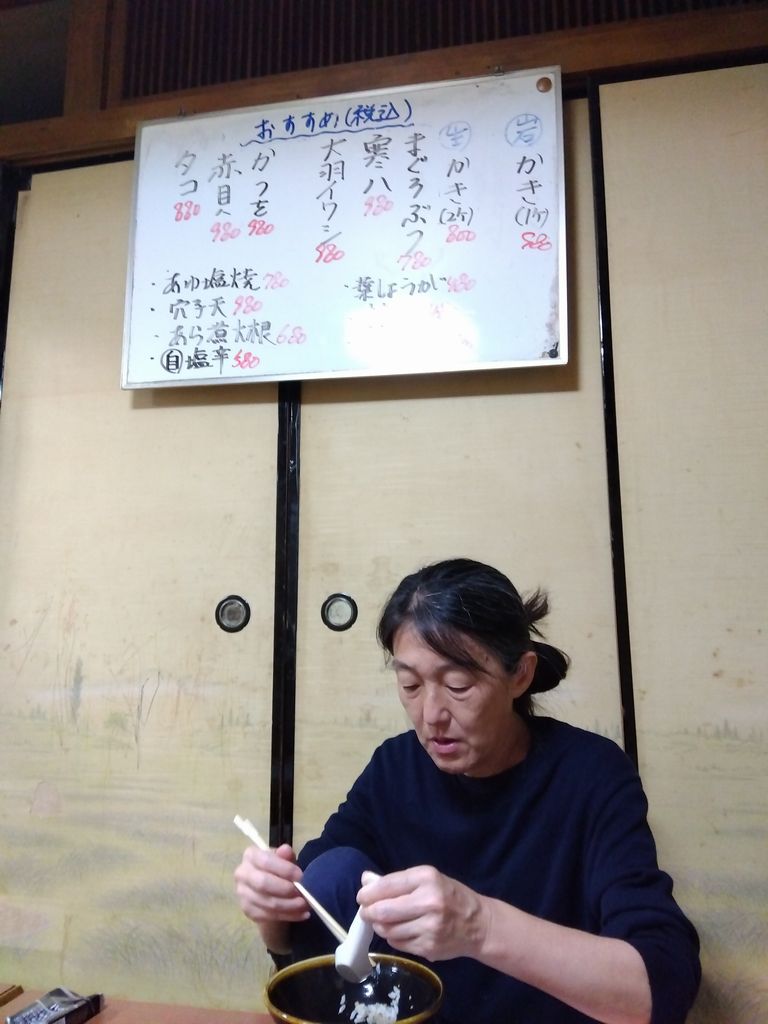 おすすめ(税込)
岩 かき(1ケ) 980
生 かき(2ケ) 800
まぐろぶつ 780
寒八 980
大羽イワシ 980
かつを 980
赤目へ 980
タコ 880
・あゆ塩焼 780
・穴子天 980
・あら煮大根 680
・自塩辛 580
・葉しょうが 480